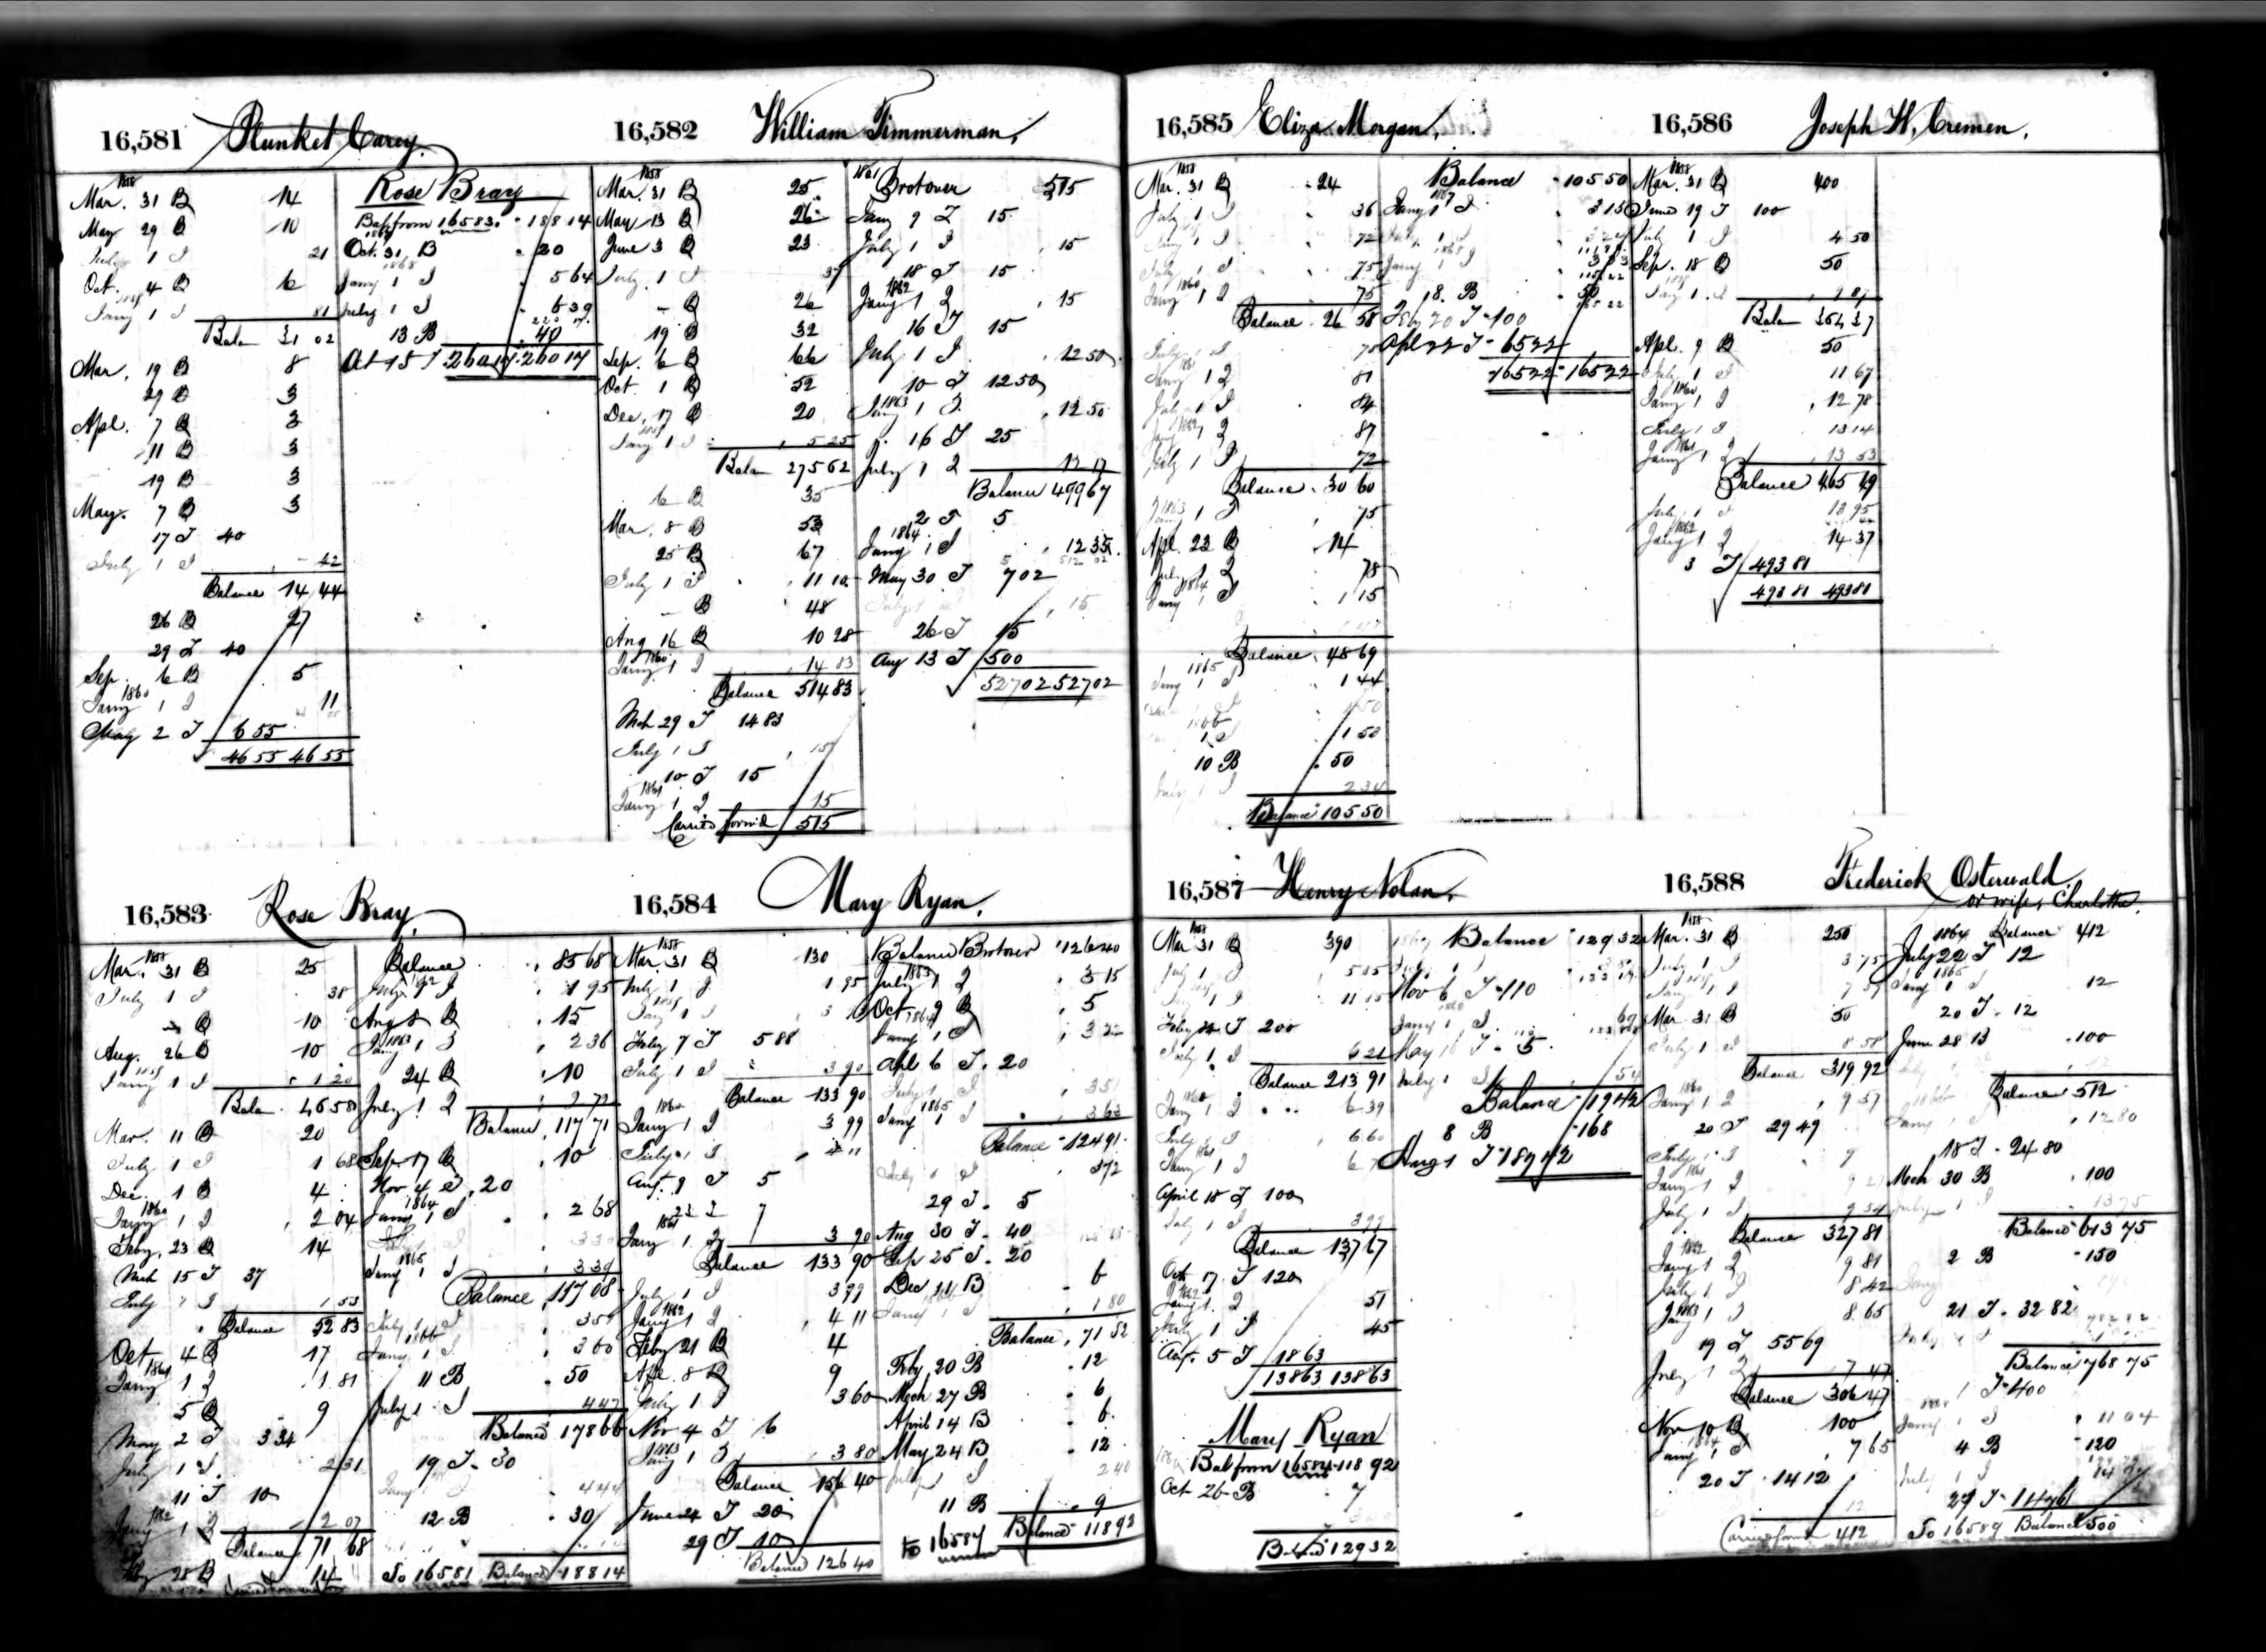 16,581 Plunket Carey.
1858
Mar. 31 B 14
May 29 B 10
July 1 I 21
Oct. 4 B 6
1859
Jany 1 I 81
Balan 31 02
Mar. 19 B 8
29 B 3
Apl. 7 B 3
11 B 3
19 B 3
May. 7 B 3
17 I 40
July 1 I 42
Balance 14 44
26 B 27
29 I 40
Sep. 6 B 5
1860
Jany 1 I 11
May 2 I 6 55
46 55 46 55
Rose Bray
Bal from 16583. 188 14
Oct. 31 B 20
1868
Jany 1 I 5 64
July 1 I 6 39
13 B 40
Oct 15 I 260 17 260 17
16,582 William Timmerman.
1858
Mar. 31 B 25
May 13 B 26
June 3 B 23
July 1 I 37
B 26
19 B 32
Sep. 6 B 66
Oct. 1 B 52
Dec. 17 B 20
1859
Jany 1 I 5 25
Balan 275 62
6 B 35
Mar. 8 B 53
25 B 67
July 1 I 11 10
B 48
Aug 16 B 10 28
1860
Jany 1 I 14 83
Balance 514 83
Mch 29 I 14 83
July 1 I 15
10 I 15
1861
Jany 1 I 15
Carried forwd 515
1861
Brotover 515
Jany 9 I 15
July 1 I 15
18 I 15
1862
Jany 1 I 15
16 I 15
July 1 I 12 50
10 I 12 50
1863
Jany 1 I 12 50
16 I 25
July 1 I 12 17
Balance 499 67
2 I 5
1864
Jany 1 I 12 35
May 30 I 7 02
July 1 I 15
26 I 15
Aug 13 I 500
527 02 527 02
16,583 Rose Bray
1858
Mar. 31 B 25
July 1 I 38
B 10
Aug. 26 B 10
1859
Jany 1 I 1 20
Balan 46 58
Mar. 11 B 20
July 1 I 1 68
Dec. 1 B 4
1860
Jany 1 I 2 04
Feby. 23 B 14
Mch 15 I 37
July 1 I 1 53
Balance 52 83
Oct 4 B 17
1861
Jany 1 I 1 81
5 B 9
May 2 I 3 34
July 1 I 2 31
11 I 10
1862
Jany 1 I 2 07
Balance 71 68
28 B 14
Balance 85 68
July 1 I 1 95
Aug 8 B 15
1863
Jany 1 I 2 36
24 B 10
July 1 I 2 72
Balance 117 71
Sep. 17 B 10
Nov 4 I 20
1864
Jany 1 I 2 68
1865
Jany 1 I 3 39
Balance 117 08
July 1 I 3 51
1866
Jany 1 I 3 60
11 B 50
July 1 I 4 47
Balance 178 66
19 I 30
Jany I 4 44
12 B 30
To 16581 Balance 188 14
16,584 Mary Ryan.
1858
Mar. 31 B 130
July 1 I 1 95
1859
Jany 1 I
Feby 7 I 5 88
July 1 I 3 90
Balance 133 90
1860
Jany 1 I 3 99
July 1 I 4 11
Aug. 9 I 5
22 I 7
1861
Jany 1 I 3 90
Balance 133 90
July 1 I 3 99
1862
Jany 1 I 4 11
Feby 21 B 4
Apl. 8 B 9
July 1 I 3 60
Nov 4 I 6
1863
Jany 1 I 3 80
Balance 156 40
June 24 I 20
29 I 10
Balance 126 40
Balance Brotover 126 40
1863
July 1 I 3 15
Oct 9 B 5
1864
Jany 1 I 3 22
Apl 6 I 20
July 1 I 3 51
1865
Jany 1 I 3 63
Balance 124 91
July 1 I 3 72
29 I 5
Aug 30 I 40
Sep 25 I 20
Dec 11 B 6
Jany 1 I 1 80
Balance 71 52
Feby. 20 B 12
Mch 27 B 6
April 14 B 6
May 24 B 12
July 1 I 2 40
11 B 9
To 16587 Balance 118 92
16,585 Eliza Morgan.
1858
Mar. 31 B 24
July 1 I 36
Jany 1 I 72
July 1 I 75
1860
Jany 1 I 75
Balance 26 58
July 1 I 78
Jany 1 I 81
July 1 I 84
1862
Jany 1 I 87
July 1 I 72
Balance 30 60
1863
Jany 1 I 75
Apl. 23 B 14
July 1 I 78
1864
Jany 1 I 1 15
Balance 45 69
1865
Jany 1 I 1 44
1866
1 I 1 50
10 B 50
July 1 I 2 34
Balance 105 50
Balance 105 50
1867
Jany 1 I 3 15
July 1 I 3 24
1868
Jany 1 I 3 33
18. B 50
Feby 20 I 100
Apl 22 I 65 22
165 22 165 22
16,586 Joseph H. Cremen.
1858
Mar. 31 B 400
June 19 I 100
July 1 I 4 50
Sep. 18 B 50
1859
Jany 1 I
Balan
Apl. 9 B 50
July 1 I 11 67
1860
Jany 1 I 12 78
July 1 I 13 14
1861
Jany 1 I 13 53
Balance 465 49
July 1 I 13 95
1862
Jany 1 I 14 37
3 I 493 81
493 81 493 81
16,587 Henry Nolan.
1858
Mar 31 B 390
July 1 I 5 85
Jany 1 I 11 85
Feby I 200
July 1 I 6 21
Balance 213 91
1860
Jany 1 I 6 39
July 1 I 6 60
1861
Jany 1 I 6
April 18 I 100
July 1 I 3 99
Balance 137 67
Oct 17 I 120
1862
Jany 1 I 51
July 1 I 45
Aug. 5 I 18 63
138 63 138 63
Mary Ryan
Bal from 16584 118 92
Oct 26 B 7
Bal'd 129 32
Balance 129 32
July 1 I
Nov 6 I 110
Jany 1 I
May I 5
July 1 I 54
Balance 19 42
8 B 168
Aug 1 I 187 42
16,588 Frederick Osterwald.
or wife, Charlotte.
1858
Mar. 31 B 250
July 1 I 3 75
1859
Jany 1 I 7 59
Mar 31 B 50
July 1 I 8 58
Balance 319 92
1860
Jany 1 I 9 57
20 I 29 49
July 1 I 9
1861
Jany 1 I 9 27
July 1 I 9 54
Balance 327 81
1862
Jany 1 I 9 81
July 1 I 8 42
1863
Jany 1 I 8 65
19 I 55 69
July 1 I 7 47
Balance 306 47
Nov 10 B 100
1864
Jany 1 I 7 65
20 I 14 12
12
Carried forwd 412
1864 Balance 412
July 22 I 12
1865
Jany 1 I 12
20 I 12
June 28 B 100
Balance 512
Jany 1 I 12 80
18 I 24 80
Mch 30 B 100
July 1 I 13 75
Balance 613 75
2 B 150
21 I 32 82
Balance 768 75
1 I 400
Jany 1 I 11 04
4 B 120
July 1 I
27 I
To 16589 Balance 500